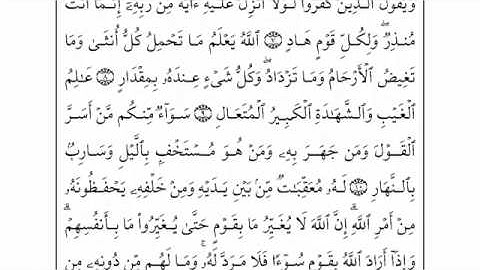 وَيَقُولُ ٱلَّذِينَ كَفَرُوا۟ لَوْلَآ أُنزِلَ عَلَيْهِ ءَايَةٌ مِّن رَّبِّهِۦٓ ۗ إِنَّمَآ أَنتَ
مُنذِرٌ ۖ وَلِكُلِّ قَوْمٍ هَادٍ ۝٧ ٱللَّهُ يَعْلَمُ مَا تَحْمِلُ كُلُّ أُنثَىٰ وَمَا
تَغِيضُ ٱلْأَرْحَامُ وَمَا تَزْدَادُ ۖ وَكُلُّ شَىْءٍ عِندَهُۥ بِمِقْدَارٍ ۝٨ عَٰلِمُ
ٱلْغَيْبِ وَٱلشَّهَٰدَةِ ٱلْكَبِيرُ ٱلْمُتَعَالِ ۝٩ سَوَآءٌ مِّنكُم مَّنْ أَسَرَّ
ٱلْقَوْلَ وَمَن جَهَرَ بِهِۦ وَمَنْ هُوَ مُسْتَخْفٍۭ بِٱلَّيْلِ وَسَارِبٌۢ
بِٱلنَّهَارِ ۝١٠ لَهُۥ مُعَقِّبَٰتٌ مِّنۢ بَيْنِ يَدَيْهِ وَمِنْ خَلْفِهِۦ يَحْفَظُونَهُۥ
مِنْ أَمْرِ ٱللَّهِ ۗ إِنَّ ٱللَّهَ لَا يُغَيِّرُ مَا بِقَوْمٍ حَتَّىٰ يُغَيِّرُوا۟ مَا بِأَنفُسِهِمْ ۗ
وَإِذَآ أَرَادَ ٱللَّهُ بِقَوْمٍ سُوٓءًا فَلَا مَرَدَّ لَهُۥ ۚ وَمَا لَهُم مِّن دُونِهِۦ مِن